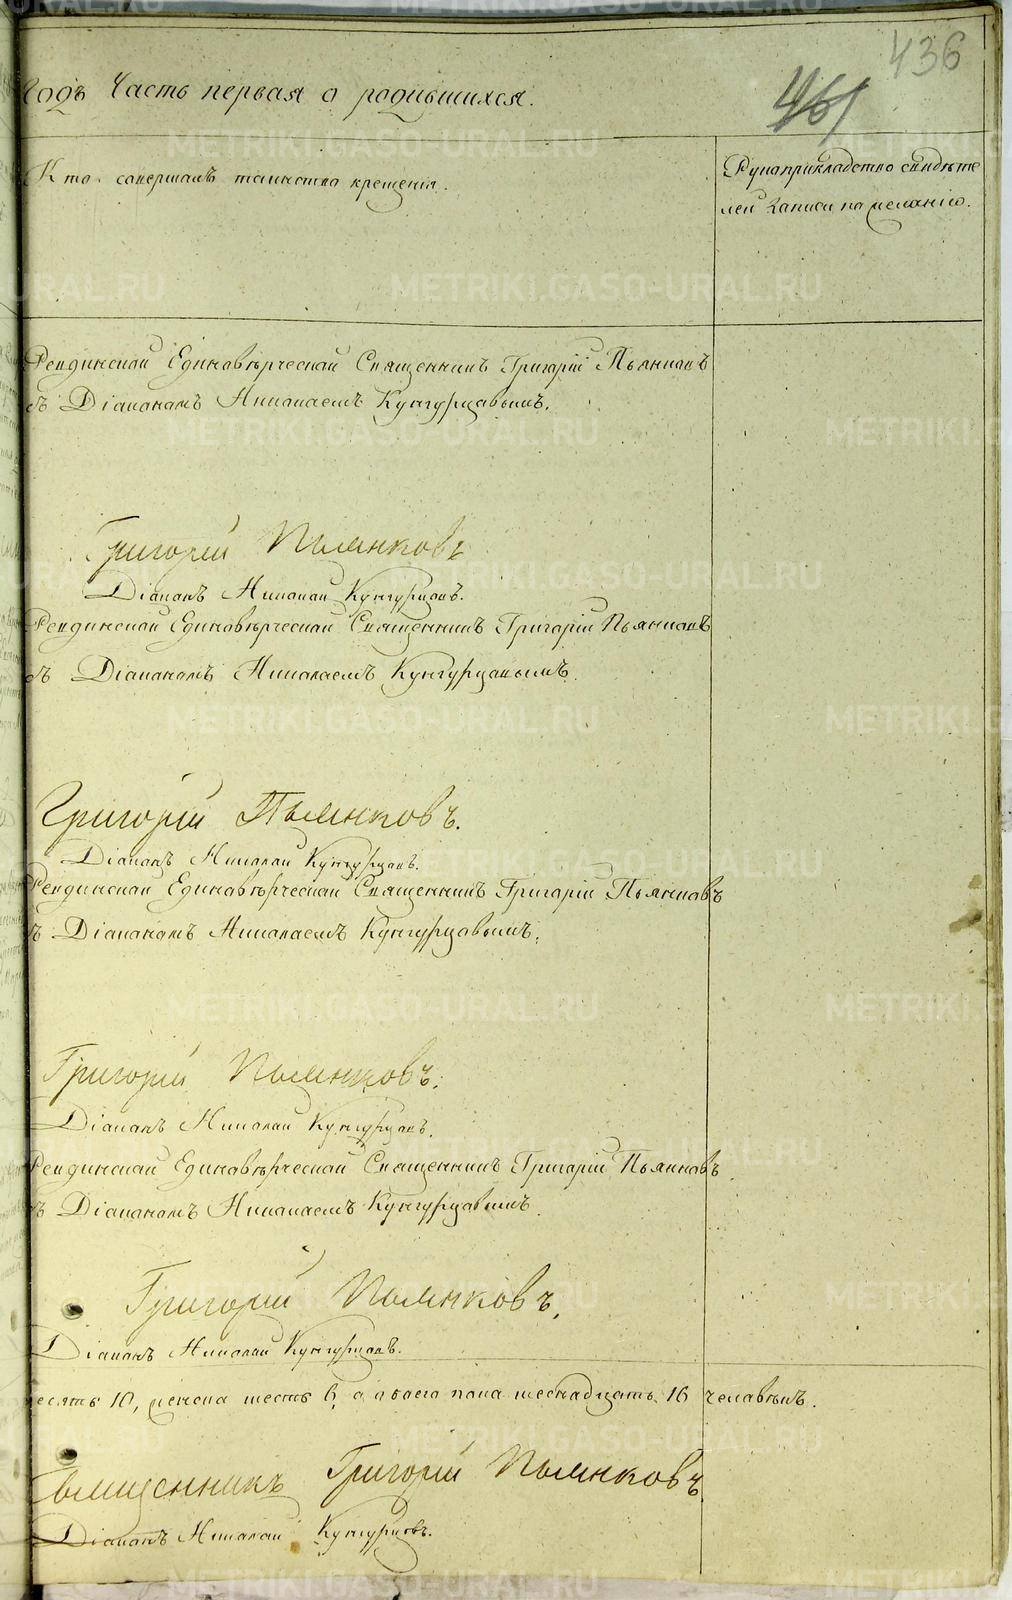 436
461
Годъ Часть первая о родившихся.
Кто совершалъ таинство крещенія.
Рукоприкладство свидѣте
лей записи по желанію.
Ревдинской Единовѣрческой Священникъ Григорій Пьянковъ
съ Діакономъ Николаемъ Кунгурцовымъ.
Григорій Пьянковъ
Діаконъ Николай Кунгурцовъ.
Ревдинской Единовѣрческой Священникъ Григорій Пьянковъ
съ Діакономъ Николаемъ Кунгурцовымъ.
Григорій Пьянковъ.
Діаконъ Николай Кунгурцовъ.
Ревдинской Единовѣрческой Священникъ Григорій Пьянковъ
съ Діакономъ Николаемъ Кунгурцовымъ.
Григорій Пьянковъ.
Діаконъ Николай Кунгурцовъ.
Ревдинской Единовѣрческой Священникъ Григорій Пьянковъ
съ Діакономъ Николаемъ Кунгурцовымъ.
Григорій Пьянковъ.
Діаконъ Николай Кунгурцовъ.
десять 10, женска шесть 6, а обоего пола шеснадцать 16 человѣкъ.
Священникъ Григорій Пьянковъ.
Діаконъ Николай Кунгурцовъ.
METRIKI.GASO-URAL.RU